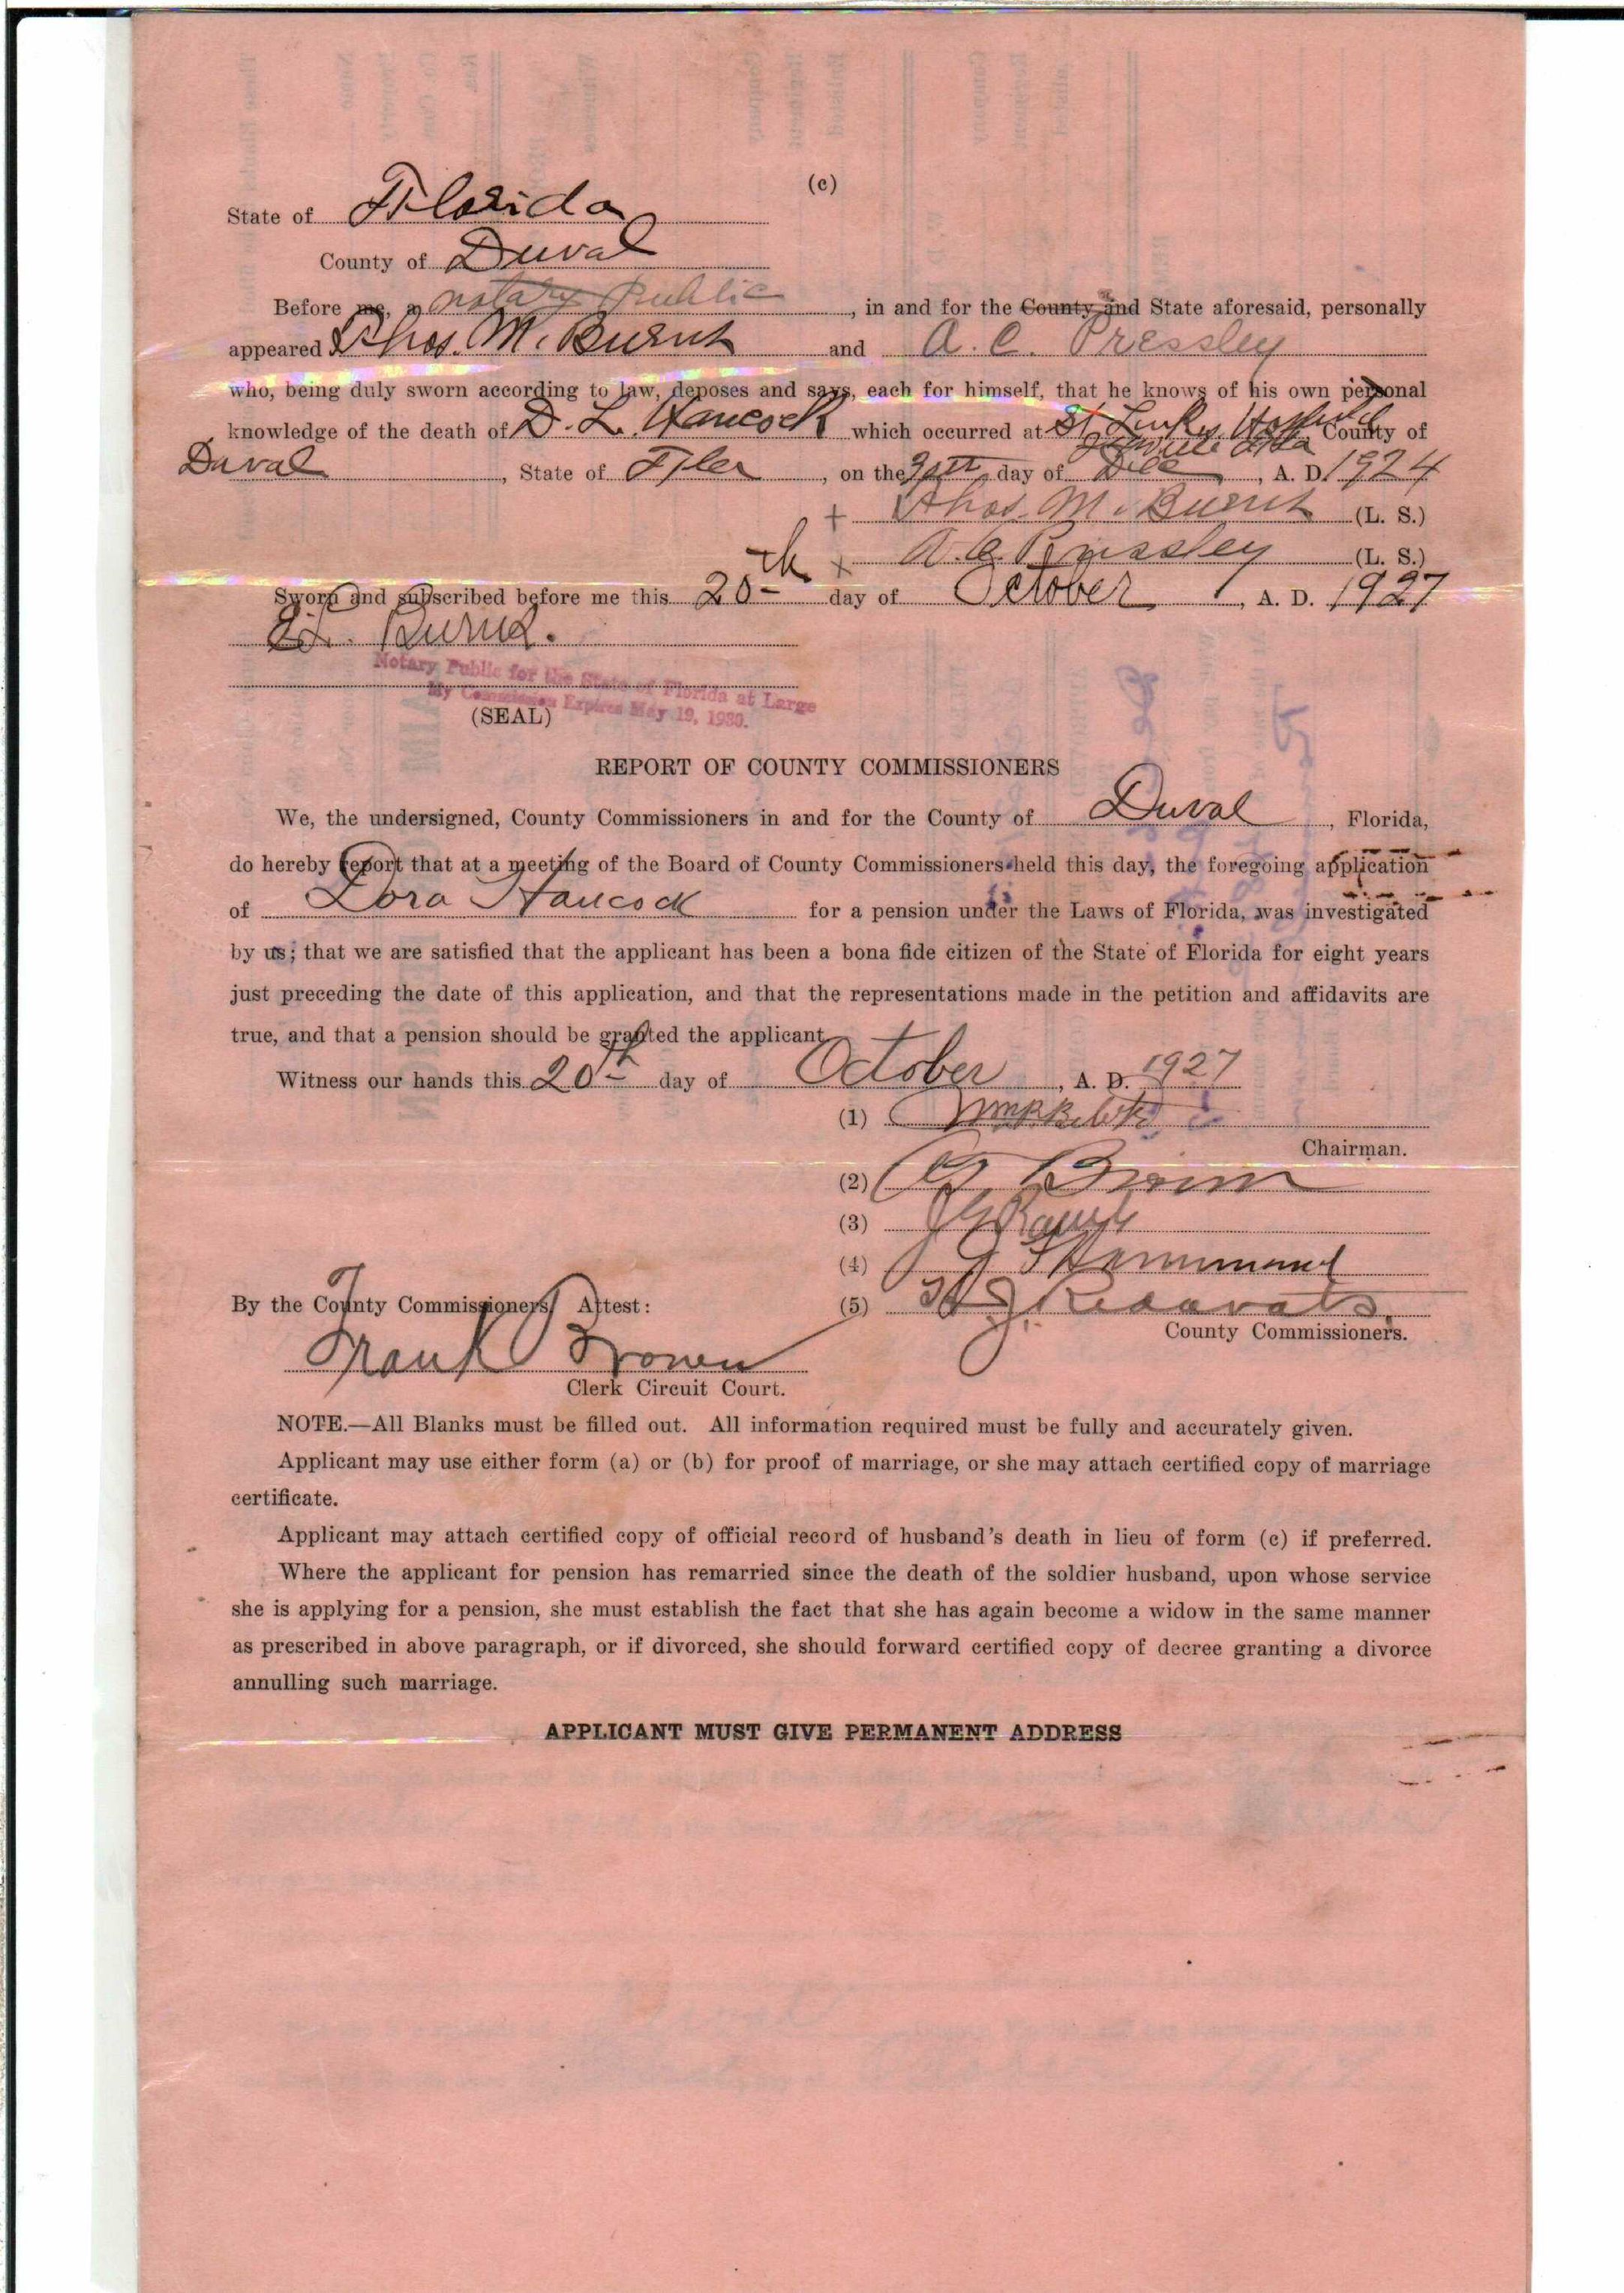 (c)
State of Florida
County of Duval
Before me, a notary Public, in and for the County and State aforesaid, personally
appeared Thos. M. Burns and A. C. Pressley
who, being duly sworn according to law, deposes and says, each for himself, that he knows of his own personal
knowledge of the death of D. L. Hancock which occurred at St Lukes Hospital County of
Duval, State of Fla, on the day of Dec, A. D. 1924
+ Thos. M. Burns (L. S.)
x A. C. Pressley (L. S.)
Sworn and subscribed before me this 20th day of October, A. D. 1927
Notary Public for the State of Florida at Large
My Commission Expires May 19, 1930.
(SEAL)
REPORT OF COUNTY COMMISSIONERS
We, the undersigned, County Commissioners in and for the County of Duval, Florida,
do hereby report that at a meeting of the Board of County Commissioners held this day, the foregoing application
of Dora Hancock for a pension under the Laws of Florida, was investigated
by us; that we are satisfied that the applicant has been a bona fide citizen of the State of Florida for eight years
just preceding the date of this application, and that the representations made in the petition and affidavits are
true, and that a pension should be granted the applicant.
Witness our hands this 20th day of October, A. D. 1927
(1)
Chairman.
(2)
(3)
(4) Hammond
By the County Commissioners, Attest: (5)
County Commissioners.
Frank Brown
Clerk Circuit Court.
NOTE.—All Blanks must be filled out. All information required must be fully and accurately given.
Applicant may use either form (a) or (b) for proof of marriage, or she may attach certified copy of marriage
certificate.
Applicant may attach certified copy of official record of husband's death in lieu of form (c) if preferred.
Where the applicant for pension has remarried since the death of the soldier husband, upon whose service
she is applying for a pension, she must establish the fact that she has again become a widow in the same manner
as prescribed in above paragraph, or if divorced, she should forward certified copy of decree granting a divorce
annulling such marriage.
APPLICANT MUST GIVE PERMANENT ADDRESS